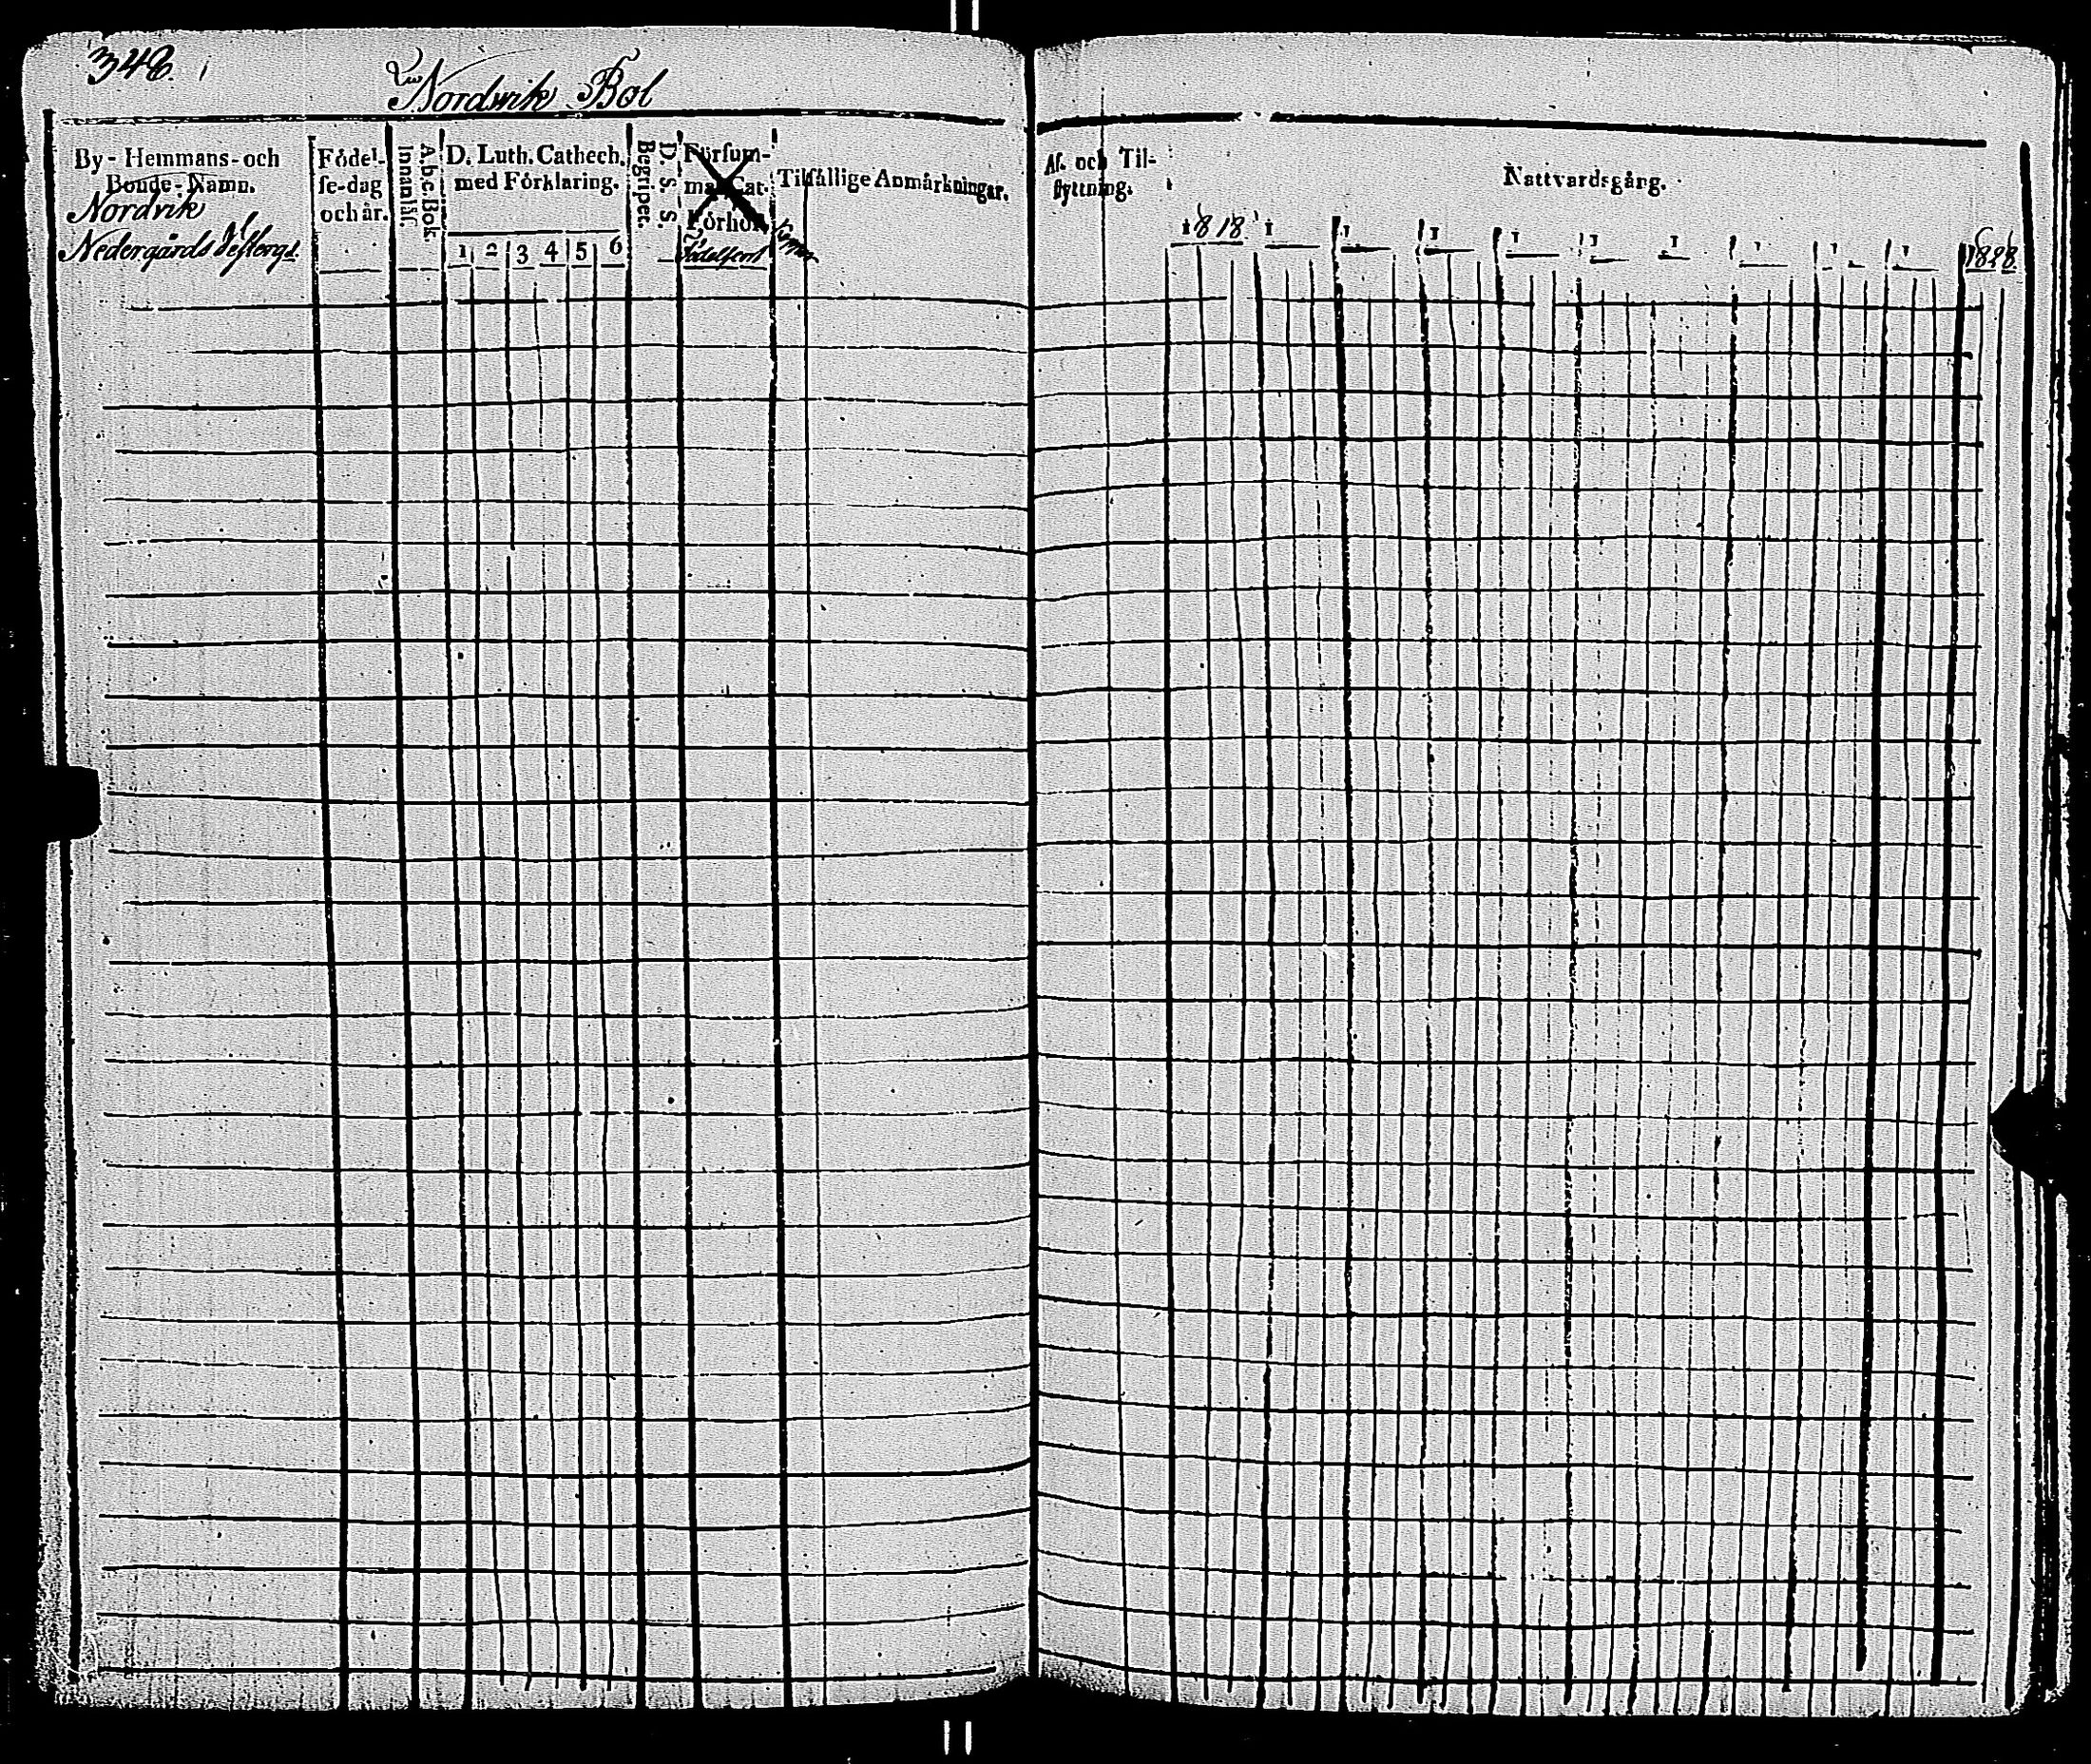 348.
Nordvik Bol
By-Hemmans-och
Bonde-Namn.
Nordvik
Nedergårds
Födel-
se-dag
och år.
A.b.c. Bok.
Innanläs.
D. Luth. Cathech.
med Förklaring.
1 2 3 4 5 6
D. S. S.
Begripet.
Försum-
mat Cat.
Förhör
Födelseort
Tilfällige Anmärkningar.
Af- och Til-
flyttning.
Nattvardsgång.
1818. 1 1 1 1 1 1 1 1 1 1828.